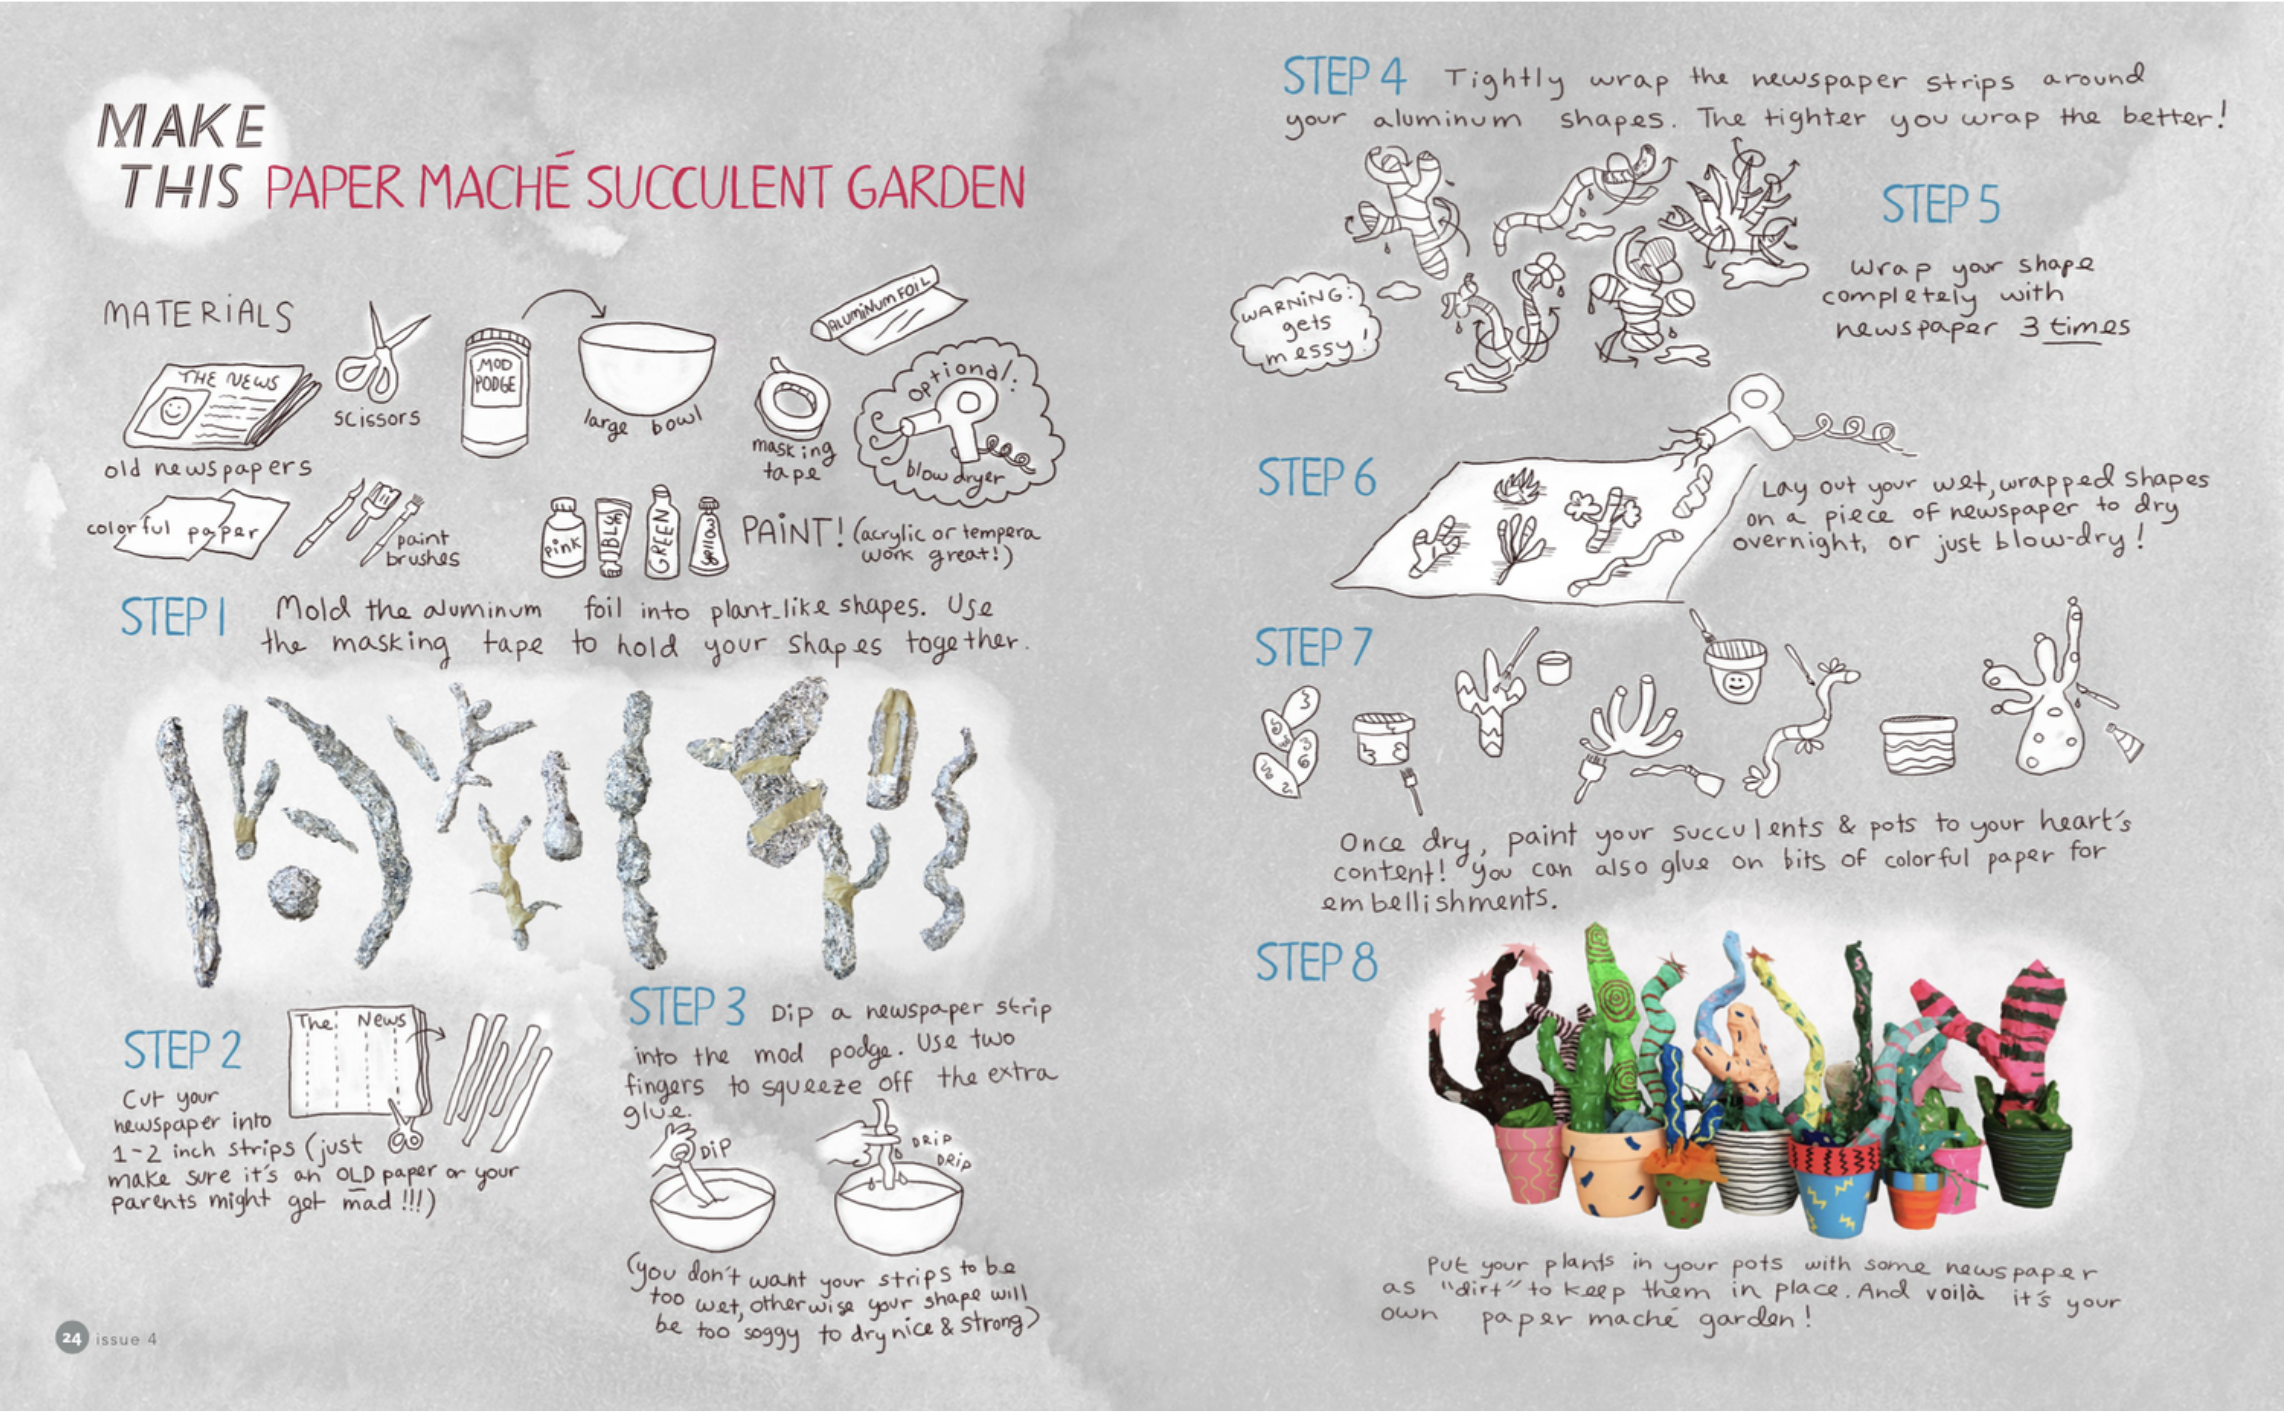 MAKE
THIS PAPER MACHÉ SUCCULENT GARDEN
MATERIALS
THE NEWS
old newspapers
scissors
MOD
PODGE
large bowl
masking
tape
ALUMINUM FOIL
optional:
blow dryer
colorful paper
paint
brushes
pink
GREEN
yellow
PAINT! (acrylic or tempera
work great!)
STEP 1 Mold the aluminum foil into plant-like shapes. Use
the masking tape to hold your shapes together.
STEP 2
The News
Cut your
newspaper into
1-2 inch strips (just
make sure it's an OLD paper or your
parents might get mad!!!)
STEP 3 Dip a newspaper strip
into the mod podge. Use two
fingers to squeeze off the extra
glue.
DIP
DRIP
DRIP
(you don't want your strips to be
too wet, otherwise your shape will
be too soggy to dry nice & strong)
24 issue 4
STEP 4 Tightly wrap the newspaper strips around
your aluminum shapes. The tighter you wrap the better!
WARNING:
gets
messy!
STEP 5
Wrap your shape
completely with
newspaper 3 times
STEP 6
Lay out your wet, wrapped shapes
on a piece of newspaper to dry
overnight, or just blow-dry!
STEP 7
Once dry, paint your succulents & pots to your heart's
content! you can also glue on bits of colorful paper for
embellishments.
STEP 8
Put your plants in your pots with some newspaper
as "dirt" to keep them in place. And voilà it's your
own paper maché garden!